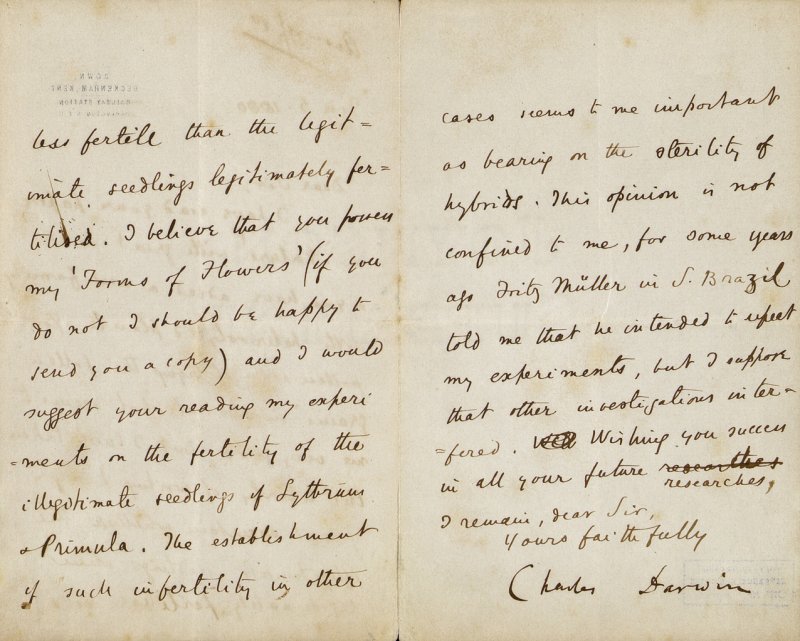 less fertile than the legit=
imate seedlings legitimately fer=
tilised. I believe that you possess
my 'Forms of Flowers' (if you
do not I should be happy to
send you a copy) and I would
suggest your reading my experi
=ments on the fertility of the
illegitimate seedlings of Lythrum
& Primula. The establishment
of such infertility in other
cases seems to me important
as bearing on the sterility of
hybrids. This opinion is not
confined to me, for some years
ago Fritz Müller in S. Brazil
told me that he intended to repeat
my experiments, but I suppose
that other investigations inter-
=fered. Wishing you success
in all your future researches
researches,
I remain, dear Sir,
Yours faithfully
Charles Darwin
DOWN,
BECKENHAM, KENT
RAILWAY STATION